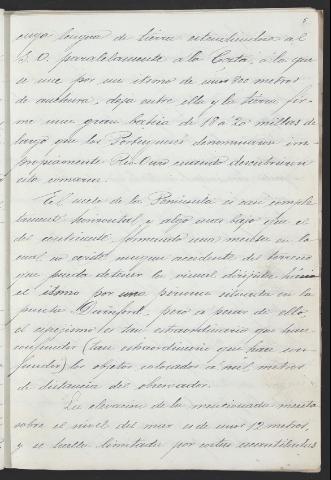 cuya lengua de tierra extendiendose al
S.O. paralelamente a la Costa, á la que
se une por un istmo de unos 800 metros
de anchura, deja entre ella y la tierra fir-
me una gran bahia de 18 á 20 millas de
largo que los Portugueses denominaron im-
propiamente Rio-Oro cuando descubrieron
esta comarca.
El suelo de la Península es casi comple-
tamente horizontal y algo mas bajo que el
del continente, formando una meseta en la
cual no existe ningun accidente del terreno
que pueda detener la visual dirijida hácia
el istmo por una persona situada en la
punta Durnford, pero a pesar de ello,
el espejismo es tan extraordinario que hace
confundir (tan extraordinario que hace con-
fundir) los objetos colocados á mil metros
de distancia del observador.
La elevacion de la mencionada meseta
sobre el nivel del mar es de unos 12 metros,
y se halla limitada por costas acantiladas